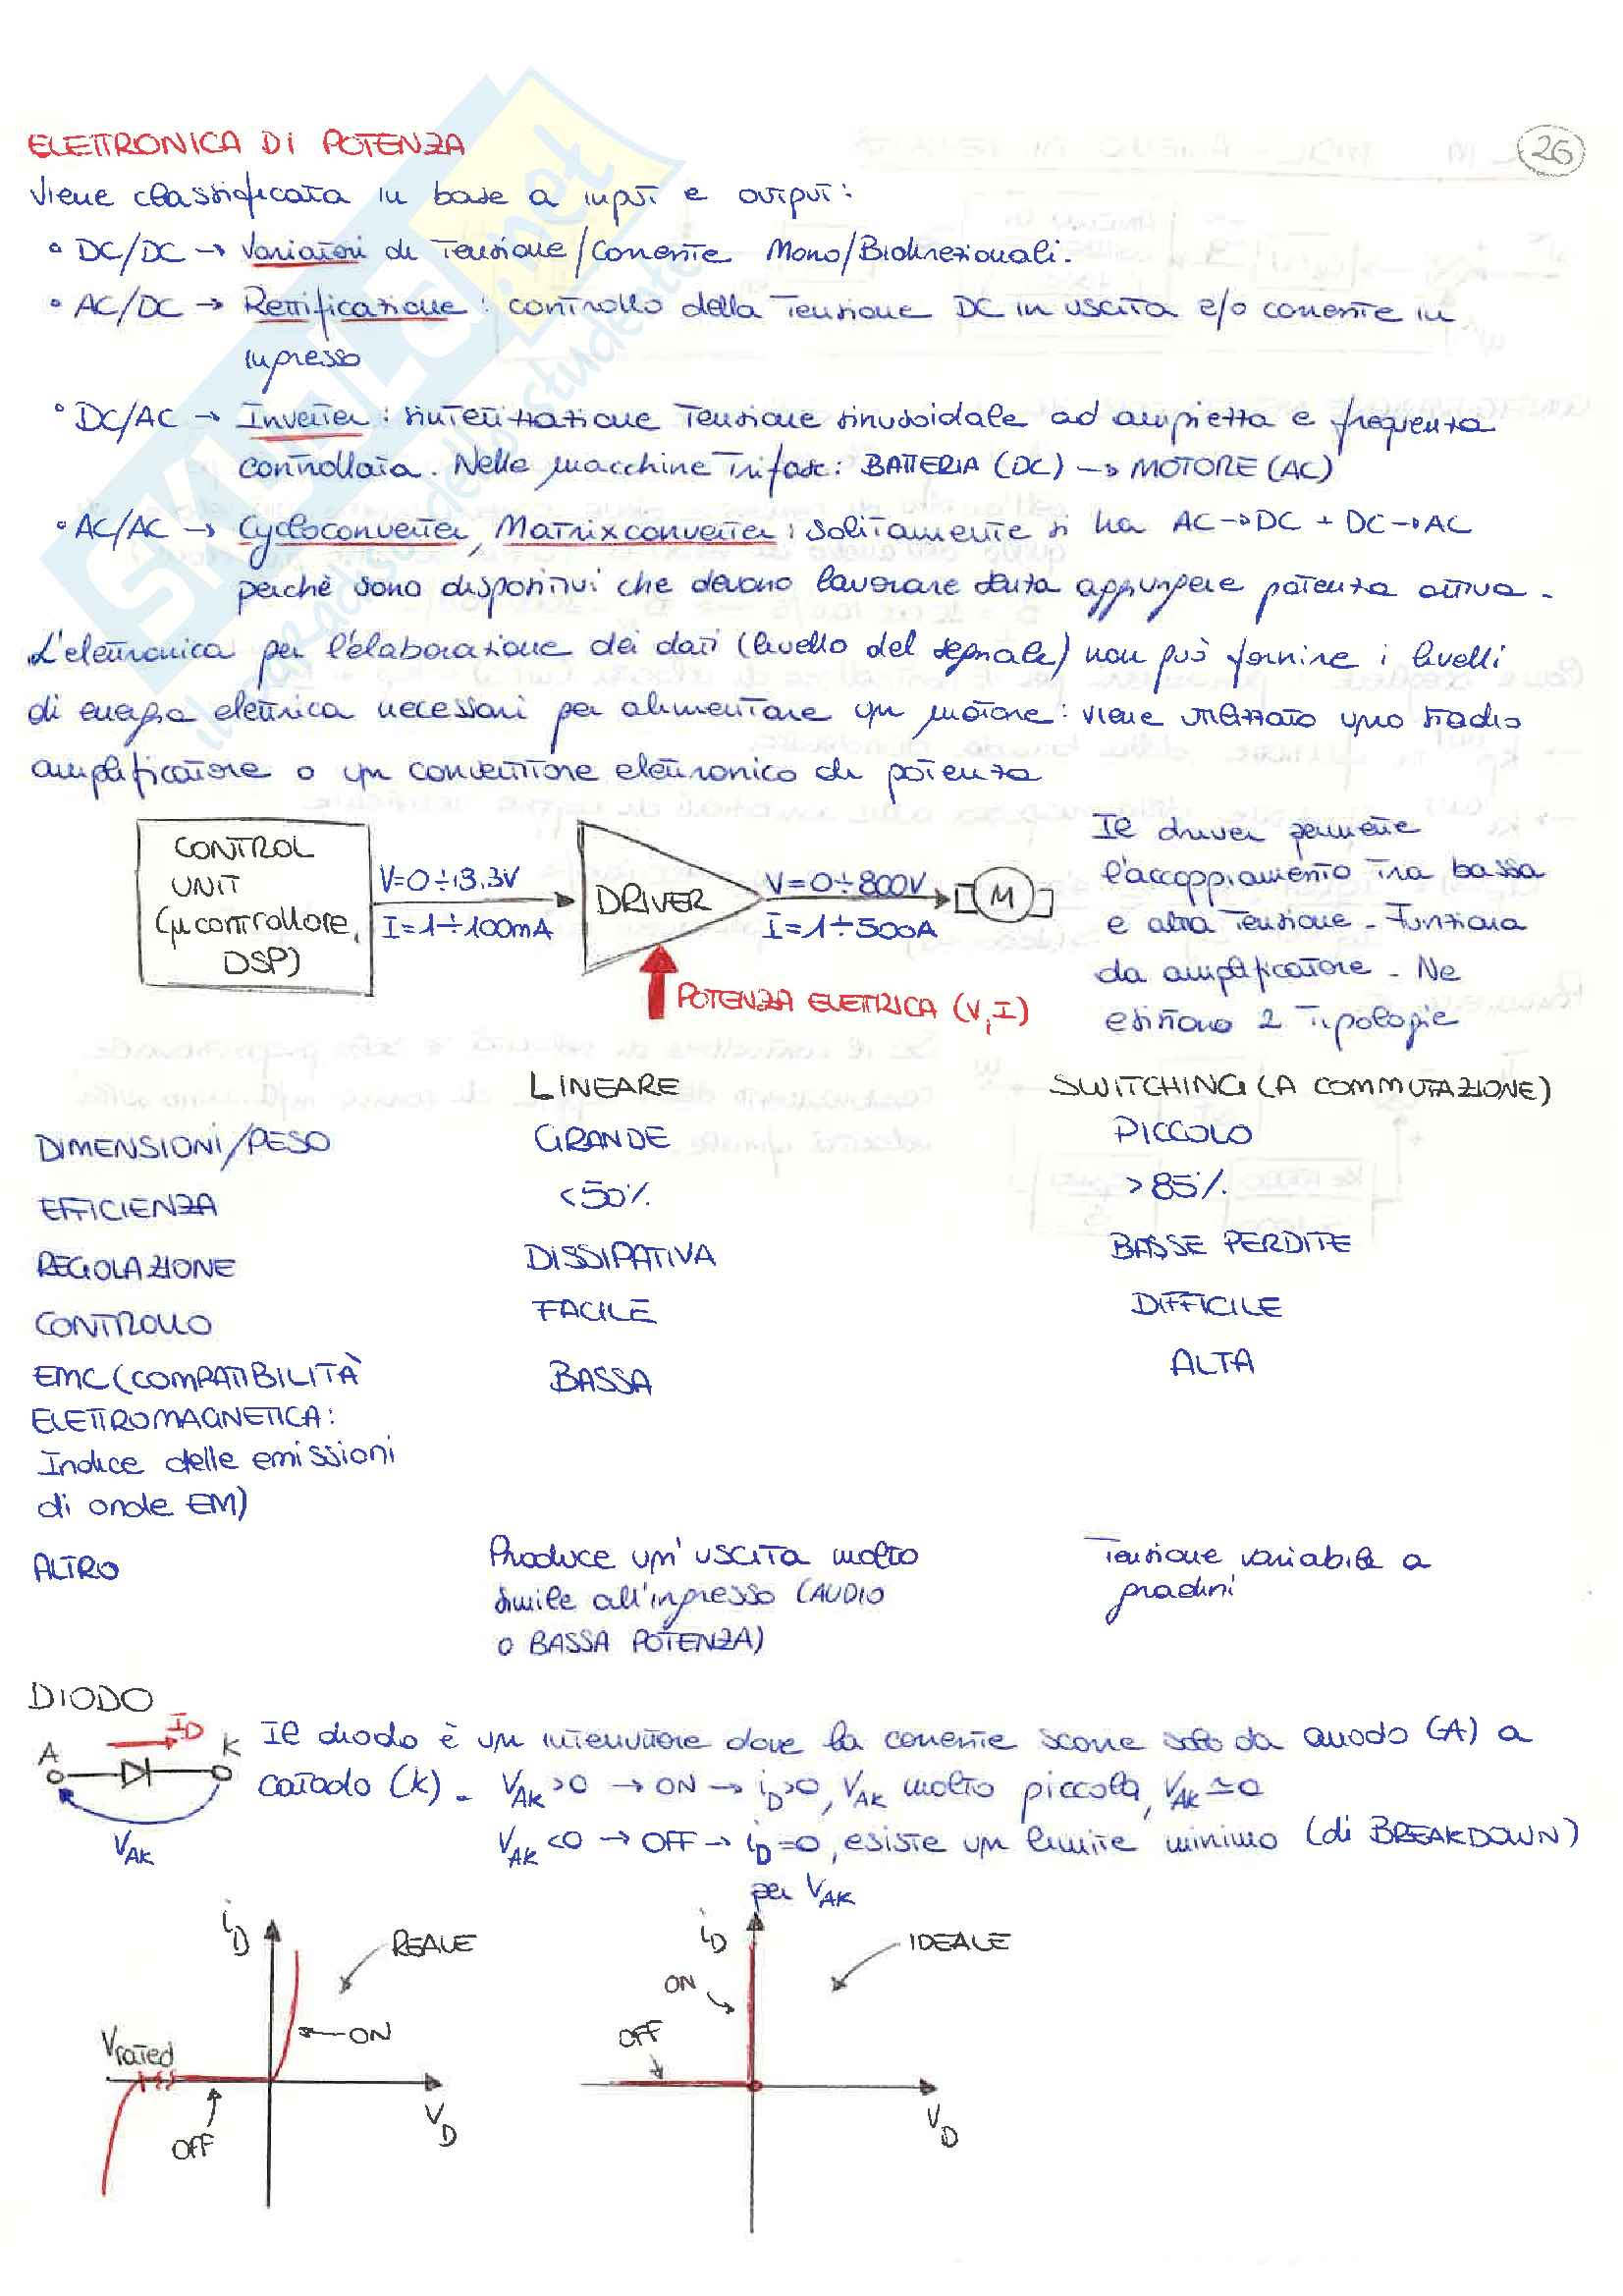 26
ELETTRONICA DI POTENZA
Viene classificata in base a input e output:
° DC/DC → Variatori di Tensione/Corrente Mono/Bidirezionali.
° AC/DC → Rettificazione: controllo della Tensione DC in uscita e/o corrente in
ingresso
° DC/AC → Inverter: sintetizzazione Tensione sinusoidale ad ampiezza e frequenza
controllata. Nelle macchine Trifase: BATTERIA (DC) → MOTORE (AC)
° AC/AC → Cycloconverter, Matrixconverter: solitamente si ha AC→DC + DC→AC
perchè sono dispositivi che devono lavorare senza aggiungere potenza attiva.
L'elettronica per l'elaborazione dei dati (livello del segnale) non può fornire i livelli
di energia elettrica necessari per alimentare un motore: viene utilizzato uno stadio
amplificatore o un convertitore elettronico di potenza
CONTROL
UNIT
(μcontrollore,
DSP)
V=0÷3.3V
I=1÷100mA
DRIVER
V=0÷800V
I=1÷500A
M
POTENZA ELETTRICA (V, I)
Il driver permette
l'accoppiamento tra bassa
e alta Tensione. Funziona
da amplificatore. Ne
esistono 2 Tipologie
LINEARE SWITCHING (A COMMUTAZIONE)
DIMENSIONI/PESO GRANDE PICCOLO
EFFICIENZA <50% >85%
REGOLAZIONE DISSIPATIVA BASSE PERDITE
CONTROLLO FACILE DIFFICILE
EMC (COMPATIBILITÀ BASSA ALTA
ELETTROMAGNETICA:
Indice delle emissioni
di onde EM)
ALTRO Produce un'uscita molto Tensione variabile a
simile all'ingresso (AUDIO gradini
O BASSA POTENZA)
DIODO
A I_D K
V_AK
Il diodo è un interruttore dove la corrente scorre solo da anodo (A) a
catodo (K). V_AK>0 → ON → i_D>0, V_AK molto piccola, V_AK≃0
V_AK<0 → OFF → i_D=0, esiste un limite minimo (di BREAKDOWN)
per V_AK
i_D
REALE
ON
Vrated
OFF
V_D
i_D
IDEALE
ON
OFF
V_D
SKUOLA.net
il paradiso dello studente